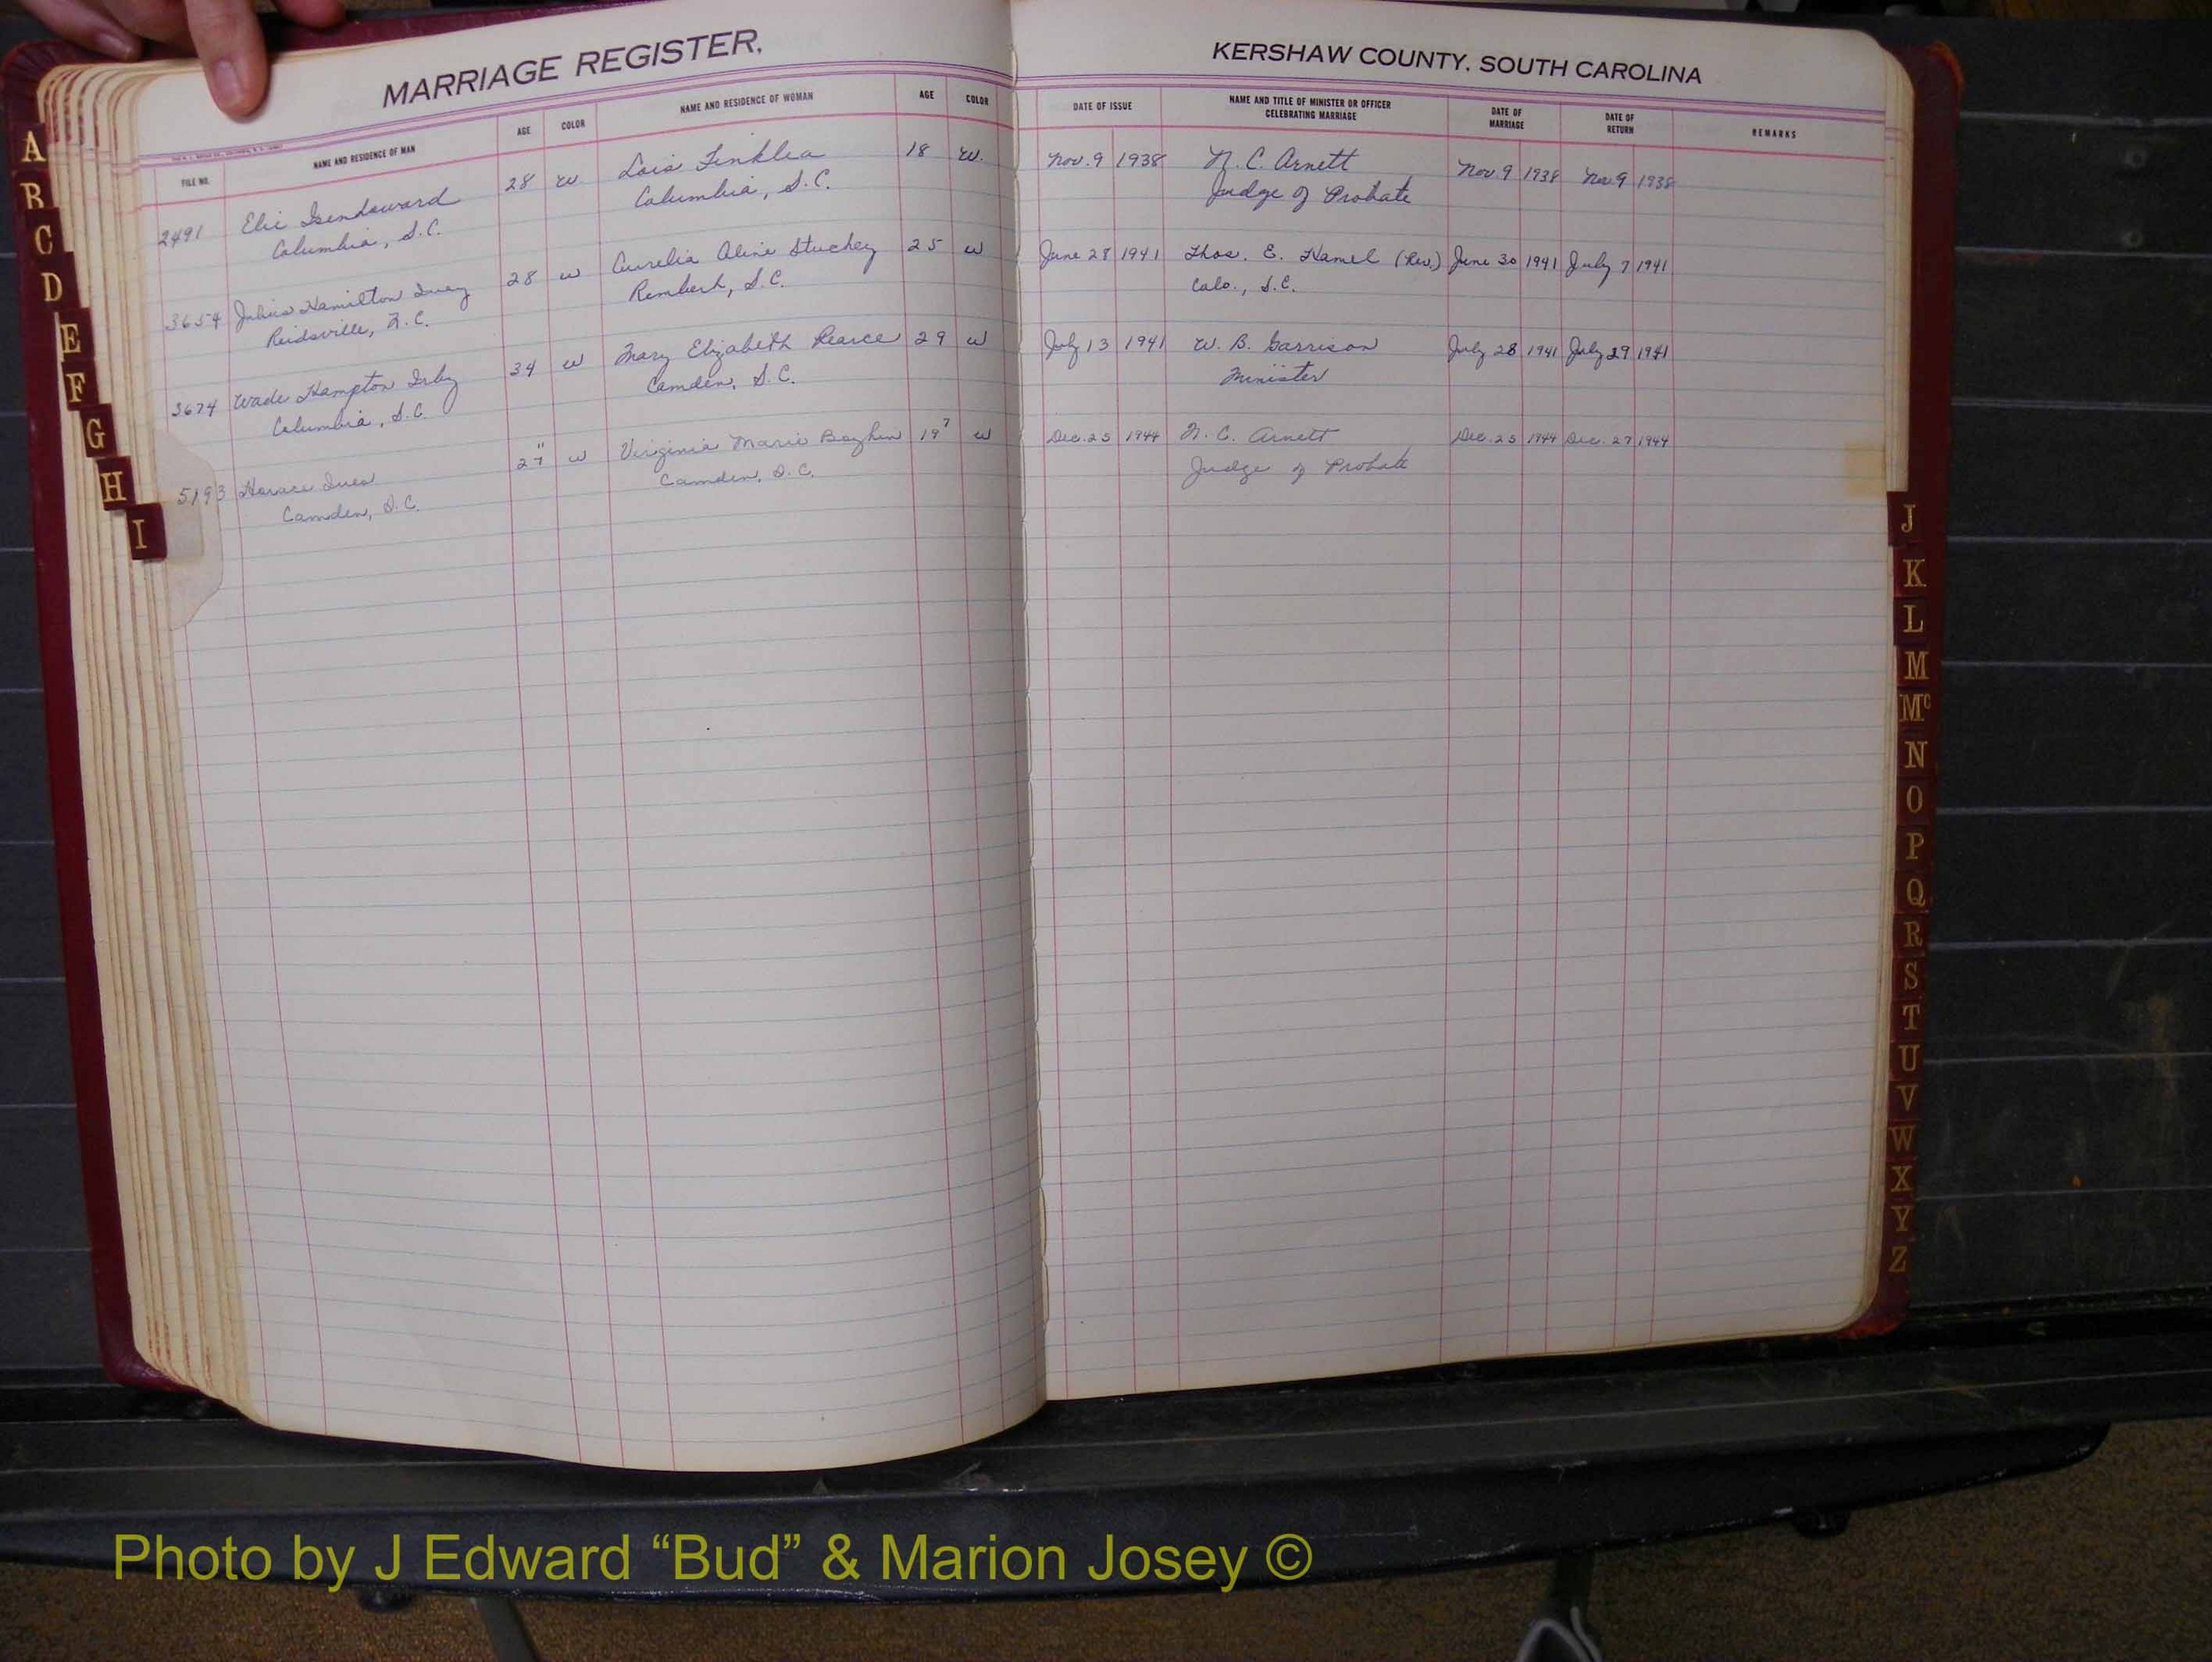 MARRIAGE REGISTER,
KERSHAW COUNTY, SOUTH CAROLINA
FILE NO. NAME AND RESIDENCE OF MAN AGE COLOR NAME AND RESIDENCE OF WOMAN AGE COLOR
DATE OF ISSUE NAME AND TITLE OF MINISTER OR OFFICER CELEBRATING MARRIAGE DATE OF MARRIAGE DATE OF RETURN REMARKS
2491 Elie 28 W. Lois Finklea 18 W. Nov. 9 1938 N. C. Arnett Nov. 9 1938 Nov 9 1938
Columbia, S.C. Columbia, S.C. Judge of Probate
3654 Julius Hamilton Ivey 28 W Aurelia Aline Stuckey 25 W June 28 1941 Thos. E. Hamel (Rev.) June 30 1941 July 7 1941
Reidsville, N.C. Rembert, S.C. Cola., S.C.
3674 Wade Hampton Irby 34 W Mary Elizabeth Pearce 29 W July 13 1941 W. B. Garrison July 28 1941 July 29 1941
Columbia, S.C. Camden, S.C. Minister
5193 Horace Ives 27 W Virginia Marie 19 W Dec. 25 1944 N. C. Arnett Dec. 25 1944 Dec. 27 1944
Camden, S.C. Camden, S.C. Judge of Probate
A
B
C
D
E
F
G
H
I
J
K
L
M
Mc
N
O
P
Q
R
S
T
U
V
W
X
Y
Z
Photo by J Edward “Bud” & Marion Josey ©